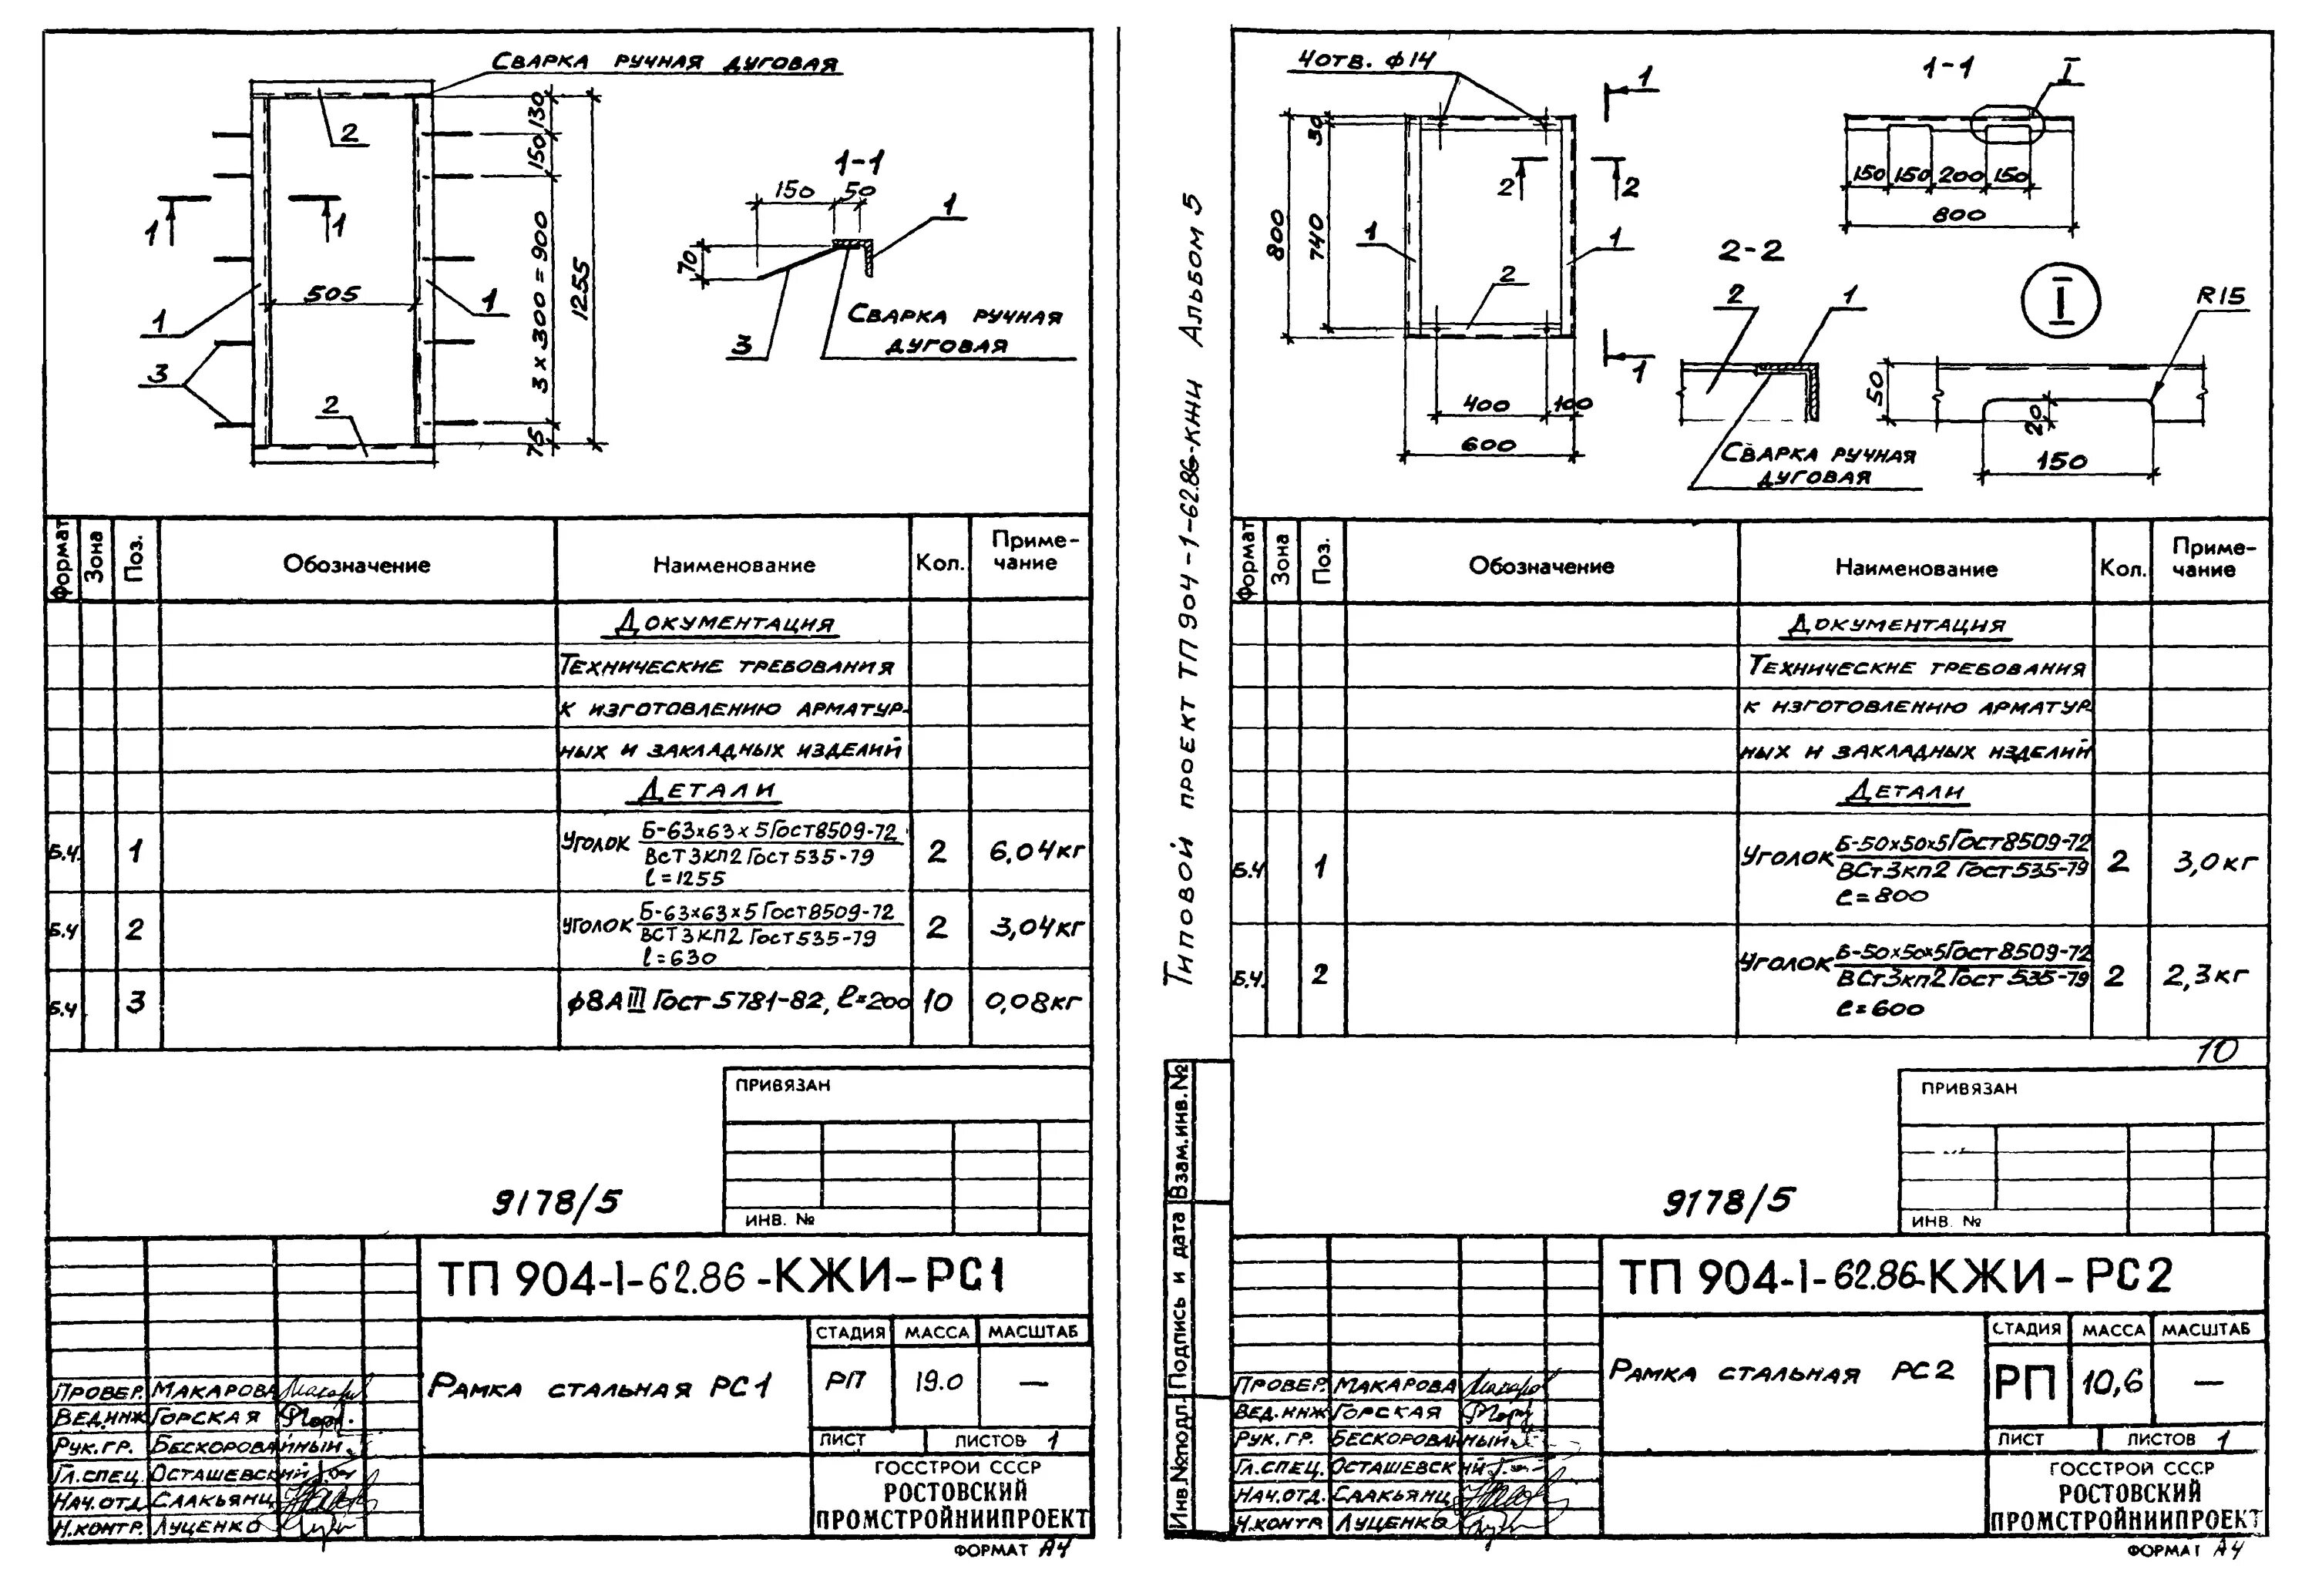 Сварка ручная дуговая
2
130
150
3 × 300 = 900
75
1255
1
1
505
1
1
3
2
1-1
150
50
1
70
3
Сварка ручная
дуговая
Формат
Зона
Поз.
Обозначение
Наименование
Кол.
Приме-
чание
Документация
Технические требования
к изготовлению арматур-
ных и закладных изделий
Детали
Б.ч. 1 Уголок Б-63×63×5 Гост 8509-72 2 6,04 кг
ВСт3кп2 Гост 535-79
l=1255
Б.ч 2 Уголок Б-63×63×5 Гост 8509-72 2 3,04 кг
ВСт3кп2 Гост 535-79
l=630
Б.ч 3 ф8АIII Гост 5781-82, l=200 10 0,08 кг
ПРИВЯЗАН
ИНВ. №
9178/5
ТП 904-1-62.86-КЖИ-РС1
Рамка стальная РС1
СТАДИЯ МАССА МАСШТАБ
РП 19.0 —
ЛИСТ ЛИСТОВ 1
ГОССТРОЙ СССР
РОСТОВСКИЙ
ПРОМСТРОЙНИИПРОЕКТ
Провер. Макарова
Вед.инж Горская
Рук.гр. Бескорованный
Гл.спец. Осташевский
Нач.отд Саакьянц
Н.контр. Луценко
ФОРМАТ А4
Типовой проект ТП 904-1-62.86-КЖИ Альбом 5
Взам.инв.№
Подпись и дата
Инв.№подл.
4 отв. ф14
1
1
30
740
800
2
2
1
1
2
400
100
600
1-1
I
150
150
200
150
800
2-2
2
1
Сварка ручная
дуговая
I
R15
50
20
150
Формат
Зона
Поз.
Обозначение
Наименование
Кол.
Приме-
чание
Документация
Технические требования
к изготовлению арматур-
ных и закладных изделий
Детали
Б.ч 1 Уголок Б-50×50×5 Гост 8509-72 2 3,0 кг
ВСт3кп2 Гост 535-79
l=800
Б.ч. 2 Уголок Б-50×50×5 Гост 8509-72 2 2,3 кг
ВСт3кп2 Гост 535-79
l=600
10
ПРИВЯЗАН
ИНВ. №
9178/5
ТП 904-1-62.86-КЖИ-РС2
Рамка стальная РС2
СТАДИЯ МАССА МАСШТАБ
РП 10,6 —
ЛИСТ ЛИСТОВ 1
ГОССТРОЙ СССР
РОСТОВСКИЙ
ПРОМСТРОЙНИИПРОЕКТ
Провер. Макарова
Вед.инж Горская
Рук.гр. Бескорованный
Гл.спец. Осташевский
Нач.отд. Саакьянц
Н.контр Луценко
ФОРМАТ А4